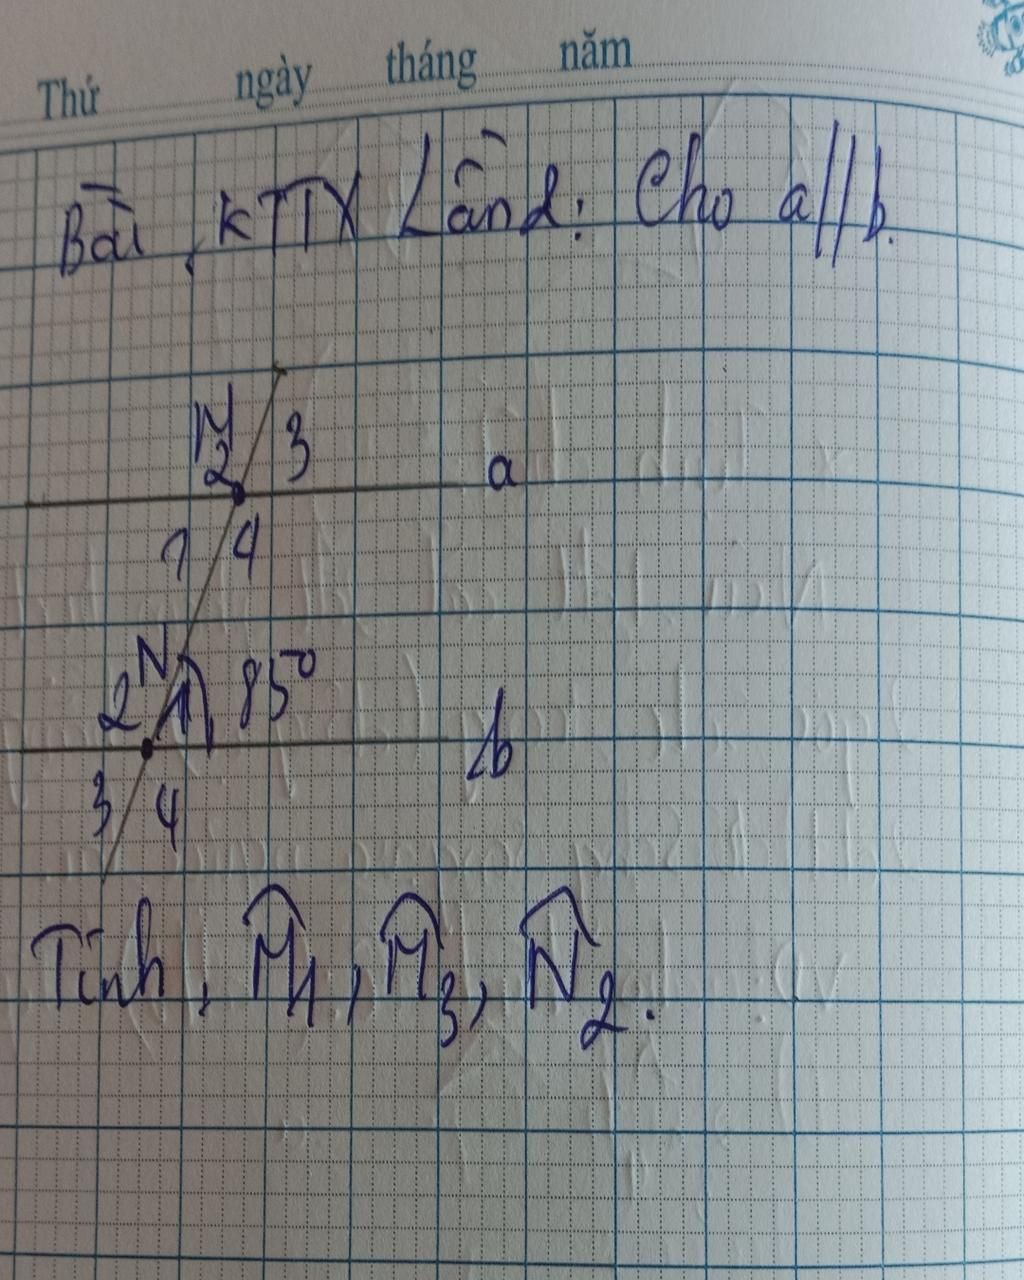 Thứ ngày tháng năm
Bài KTTX Lần 2: Cho a//b.
M
2 3
a
1 4
N
2 1 85°
b
3 4
Tính, M̂1, M̂3, N̂2.